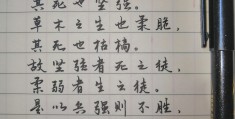 其死也坚强。
草木之生也柔脆，
其死也枯槁。
故坚强者死之徒，
柔弱者生之徒。
是以兵强则不胜，